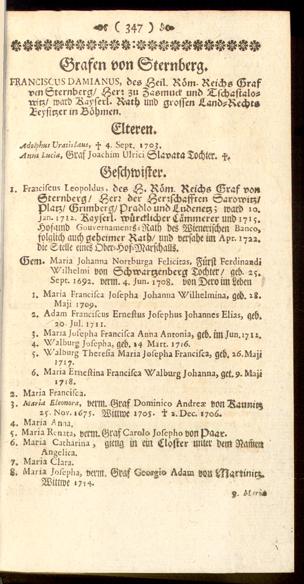 ( 347 )
Grafen von Sternberg.
FRANCISCUS DAMIANUS, des Heil. Röm. Reichs Graf
von Sternberg/ Herr zu Zasmuck und Tschastalo-
witz/ ward Kayserl. Rath und grossen Land-Rechts
Beysitzer in Böhmen.
Elteren.
Adolphus Uratislaus, † 4. Sept. 1703.
Anna Lucia, Graf Joachim Ulrici Slavata Tochter. †.
Geschwister.
1. Franciscus Leopoldus, des H. Röm. Reichs Graf von
Sternberg/ Herr der Herrschafften Sarowitz/
Platz/ Grimberg/ Pradlo und Ludenetz; ward 10.
Jan. 1712. Kayserl. würcklicher Cämmerer und 1715.
Hof- und Gouvernaments-Rath des Wienerischen Banco,
folglich auch geheimer Rath/ und versahe im Apr. 1722.
die Stelle eines Ober-Hof-Marschalls.
Gem. Maria Johanna Norrburga Felicitas, Fürst Ferdinandi
Wilhelmi von Schwartzenberg Tochter/ geb. 25.
Sept. 1692. verm. 4. Jun. 1708. von Dero im Leben
1. Maria Francisca Josepha Johanna Wilhelmina, geb. 28.
Maji 1709.
2. Adam Franciscus Ernestus Josephus Johannes Elias, geb.
20. Jul. 1711.
3. Maria Josepha Francisca Anna Antonia, geb. im Jun. 1712.
4. Walburg Josepha, geb. 14 Mart. 1716.
5. Walburg Theresia Maria Josepha Francisca, geb. 26. Maji
1717.
6. Maria Ernestina Francisca Walburg Johanna, geb. 9. Maji
1718.
2. Maria Francisca.
3. Maria Eleonora, verm. Graf Dominico Andreæ von Kaunitz
25. Nov. 1675. Wittwe 1705. † 2. Dec. 1706.
4. Maria Anna.
5. Maria Renata, verm. Graf Carolo Josepho von Paar.
6. Maria Catharina, gieng in ein Closter unter dem Namen
Angelica.
7. Maria Clara.
8. Maria Josepha, verm. Graf Georgio Adam von Martinitz,
Wittwe 1714.
9. Maria